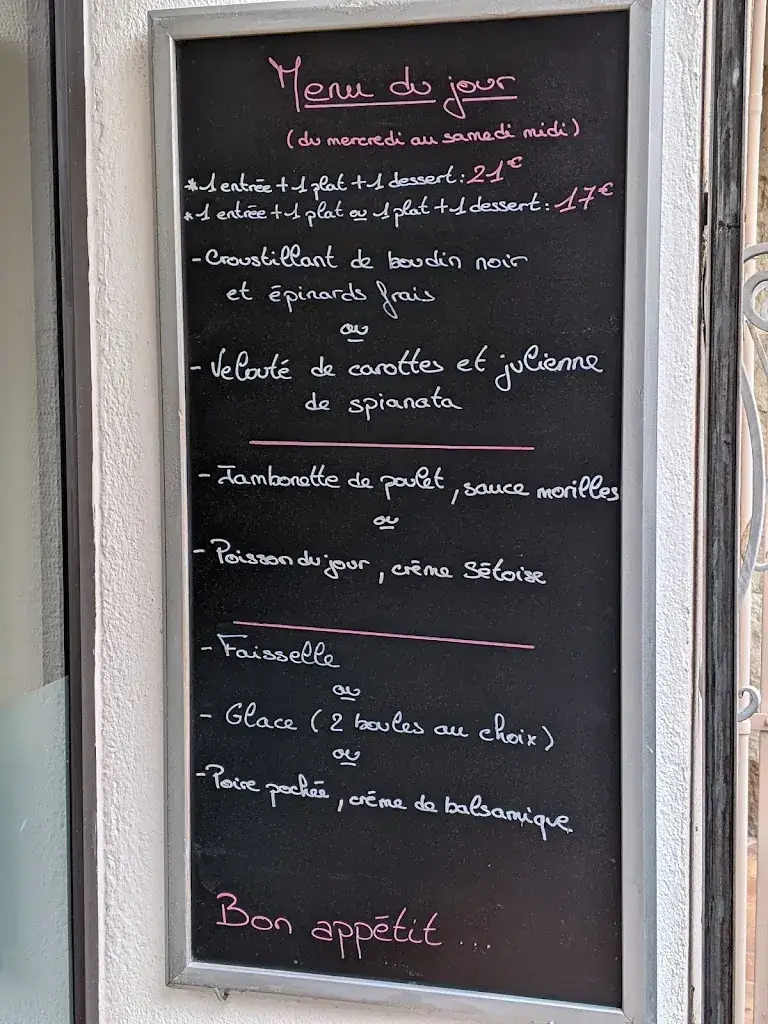 Menu du jour
(du mercredi au samedi midi)
*1 entrée + 1 plat + 1 dessert : 21€
*1 entrée + 1 plat ou 1 plat + 1 dessert : 17€
- Croustillant de boudin noir
et épinards frais
ou
- Velouté de carottes et julienne
de spianata
- Jambonette de poulet, sauce morilles
ou
- Poisson du jour, crème Sétoise
- Faisselle
ou
- Glace (2 boules au choix)
ou
- Poire pochée, crème de balsamique
Bon appétit ...